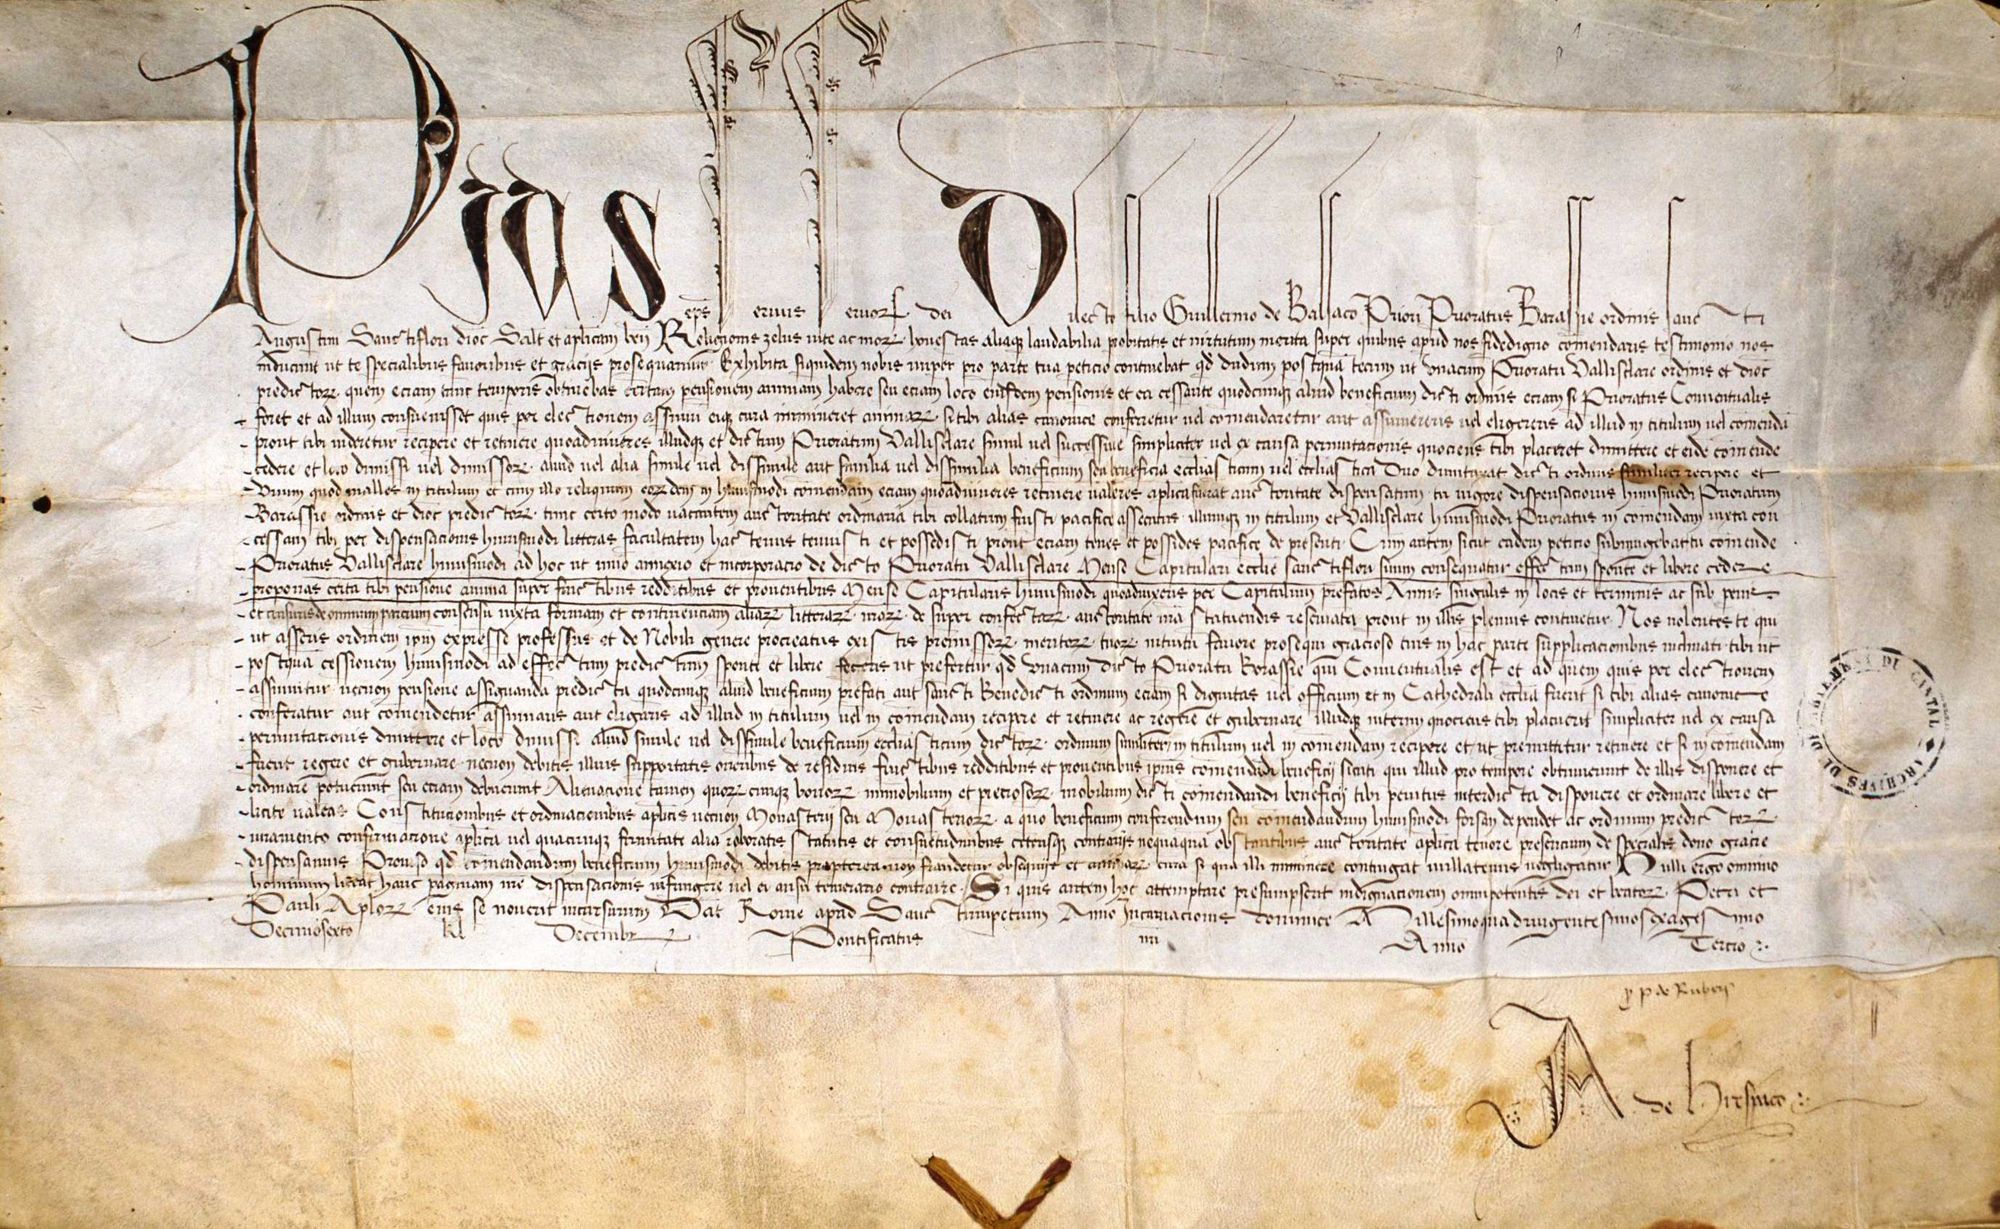 Pius eps servus servorꝝ dei Dilecto filio Guillermo de Balsaco Priori Prioratus Barassie ordinis sancti
Augustini Sanctiflori dioc Salt et aplicam ben Religionis zelus vite ac morꝝ honestas aliaque laudabilia probitatis et virtutum merita super quibus apud nos fidedigno comendaris testimonio nos
inducunt ut te specialibus favoribus et gracijs prosequamur Exhibita siquidem nobis nuper pro parte tua peticio continebat qd dudum postquã tecum ut unacum Prioratu Vallisclare ordinis et dioc
predictorꝝ quem etiam tunc temporis obtinebas certam pensionem annuam habere seu etiam loco eiusdem pensionis et ea cessante quodcunqꝫ aliud beneficium dicti ordinis etiam si Prioratus Conventualis
foret et ad illum consuevisset quis per electionem assumi eiqꝫ cura immineret animarꝝ si tibi alias canonice conferretur vel comendaretur aut assumereris vel eligereris ad illud in titulum vel comendã
prout tibi videretur recipere et retinere quoadviveres illudqꝫ et dictum Prioratum Vallisclare simul vel successive simpliciter vel ex causa permutacionis quociens tibi placeret dimittere et eidẽ comende
cedere et loco dimissi vel dimissorꝝ aliud vel alia simile vel dissimile aut similia vel dissimilia beneficium seu beneficia ecclesiasticum vel ecclesiastica Duo dumtaxat dicti ordinis similiter recipere et
Unum quod malles in titulum et cum illo reliquum eorꝝdem in huiusmodi comendam etiam quoadviveres retinere valeres aplica fuerat auctoritate dispensatum tu vigore dispensacionis huiusmodi Prioratum
Barassie ordinis et dioc predictorꝝ tunc certo modo vacantem auctoritate ordinaria tibi collatum fuisti pacifice assecutus illumqꝫ in titulum et Vallisclare huiusmodi Prioratus in comendam iuxta con
cessam tibi per dispensacionis huiusmodi litteras facultatem hactenus tenuisti et possedisti prout etiam tenes et possides pacifice de presenti Cum autem sicut eadem peticio subiungebat tu comende
Prioratus Vallisclare huiusmodi ad hoc ut unio annexio et incorporacio de dicto Prioratu Vallisclare Mense Capitulari ecclie sanctiflori suum consequatur effectum sponte et libere cedere
proponas certa tibi pensione annua super fructibus redditibus et proventibus Mense Capitularis huiusmodi quoadvixeris per Capitulum prefatos Annis singulis in locis et terminis ac sub penis
et censuris de omnium parcium consensu iuxta formam et continenciam aliarꝝ litterarꝝ nrarꝝ de super confectarꝝ auctoritate nra statuendis reservata prout in illis plenius continetur Nos volentes te qui
ut asseris ordinem ipm expresse professus et de Nobili genere procreatus existis premissorꝝ meritorꝝ tuorꝝ intuitu favore prosequi gracioso tuis in hac parte supplicacionibus inclinati tibi ut
postquã cessionem huiusmodi ad effectum predictum sponte et libere feceris ut prefertur qd Unacum dicto Prioratu Barassie qui Conventualis est et ad quem quis per electionem
assumitur necnon pensione assignanda predicta quodcunqꝫ aliud beneficium prefati aut sancti Benedicti ordinum etiam si dignitas vel officium et in Cathedrali ecclia fuerit si tibi alias canonice
conferatur aut comendetur assumaris aut eligaris ad illud in titulum vel in comendam recipere et retinere ac regere et gubernare illudqꝫ interim quociens tibi placuerit simpliciter vel ex causa
permutacionis dimittere et loco dimissi aliud simile vel dissimile beneficium ecclesiasticum dictorꝝ ordinum similiter in titulum vel in comendam recipere et ut premittitur retinere et si in comendam
fuerit regere et gubernare necnon debitis illius supportatis oneribus de residuis fructibus redditibus et proventibus ipius comendandi beneficij sicuti qui illud pro tempore obtinuerunt de illis disponere et
ordinare potuerunt seu etiam debuerunt Alienacione tamen quorꝝcunqꝫ bonorꝝ immobilium et preciosorꝝ mobilium dicti comendandi beneficij tibi penitus interdicta disponere et ordinare libere et
licite valeas Constitucionibus et ordinacionibus aplicis necnon Monasterij seu Monasteriorꝝ a quo beneficium conferendum seu comendandum huiusmodi forsan dependet ac ordinum predictorꝝ
iuramento confirmacione aplica vel quacunqꝫ firmitate alia roboratis statutis et consuetudinibus ceterisqꝫ contrarijs nequaquã obstantibus auctoritate aplica tenore presencium de specialis dono gracie
dispensamus Proviso qd comendandum beneficium huiusmodi debitis propterea non fraudetur obsequijs et animarꝝ cura si qua illi imminere contingat nullatenus negligatur Nulli ergo omnino
hominum liceat hanc paginam nre dispensacionis infringere vel ei ausu temerario contraire Si quis autem hoc attemptare presumpserit indignacionem omnipotentis dei et beatorꝝ Petri et
Pauli Aplorꝝ eius se noverit incursurum Dat Rome apud Sanctumpetrum Anno Incarnacionis dominice Millesimoquadringentesimosexagesimo
Decimosexto kl Decembrꝝ Pontificatus nri Anno Tercio
p de Rubeis
A de Hirspaco
ARCHIVES DU CANTAL